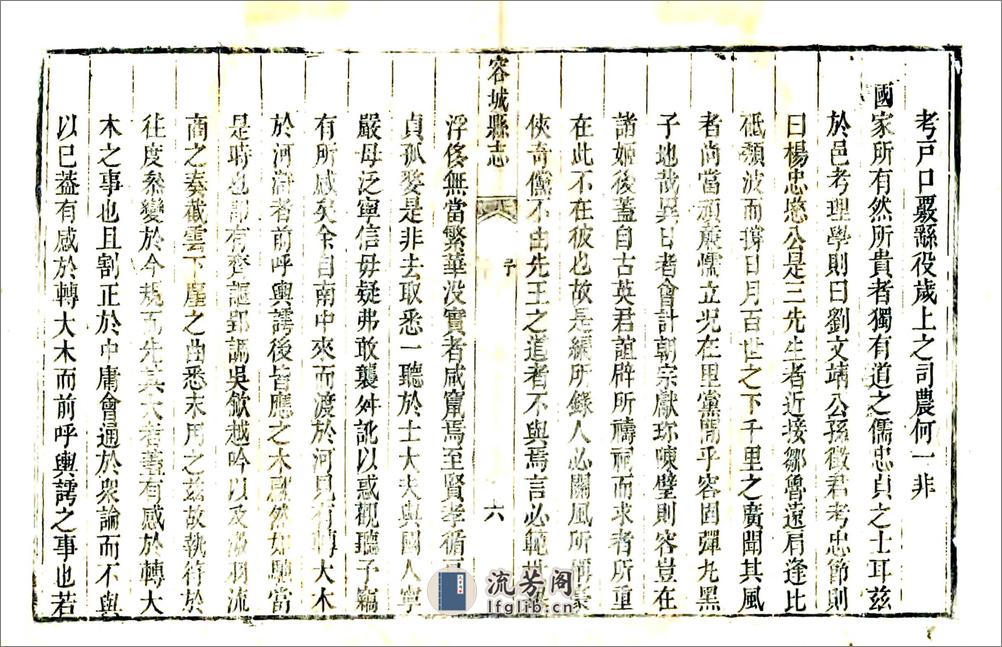 考戸口覈繇役歲上之司農何一非
國家所有然所貴者獨有道之儒忠貞之士耳茲
於邑考理學則曰劉文靖公孫徵君考忠節則
曰楊忠愍公是三先生者近接鄒魯遠肩逢比
砥頹波而揭日月百世之下千里之廣聞其風
者尚當頑廉懦立况在里黨閒乎容固彈丸黑
子地哉異日者會計朝宗獻琛陳璧則容豈在
諸姬後蓋自古英君誼辟所禱祠而求者所重
在此不在彼也故是編所錄人必關風所
俠奇儻不由先王之道者不與焉言必範世
容城縣志
序
六
浮侈無當繁華没實者咸竄焉至賢孝循
貞孤嫠是非去取悉一聽於士大夫與國人寧
嚴毋泛寧信毋疑弗敢襲舛訛以惑觀聽予竊
有所感矣余自南中來而渡於河見有轉大木
於河滸者前呼輿謣後皆應之木
是時也即有齊謳郢謳吳歈越吟以及
商之奏截雲下塵之曲悉末用之茲故執
往度叅變於今規而先其大者蓋有感於轉大
木之事也且割正於中庸會通於衆論而不與
以巳蓋有感於轉大木而前呼輿謣之事也若
流芳阁
lfglib.cn